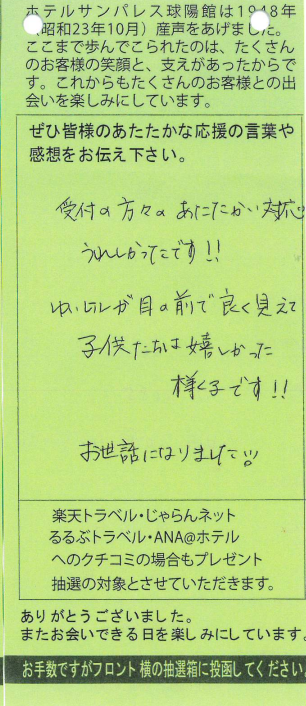 ホテルサンパレス球陽館は1948年
(昭和23年10月)産声をあげました。
ここまで歩んでこられたのは、たくさん
のお客様の笑顔と、支えがあったからで
す。これからもたくさんのお客様との出
会いを楽しみにしています。
ぜひ皆様のあたたかな応援の言葉や
感想をお伝え下さい。
受付の方々のあたたかい対応
うれしかったです!!
ゆいレールが目の前で良く見えて
子供たちは嬉しかった
様子です!!
お世話になりました
楽天トラベル・じゃらんネット
るるぶトラベル・ANA@ホテル
へのクチコミの場合もプレゼント
抽選の対象とさせていただきます。
ありがとうございました。
またお会いできる日を楽しみにしています。
お手数ですがフロント横の抽選箱に投函してください。